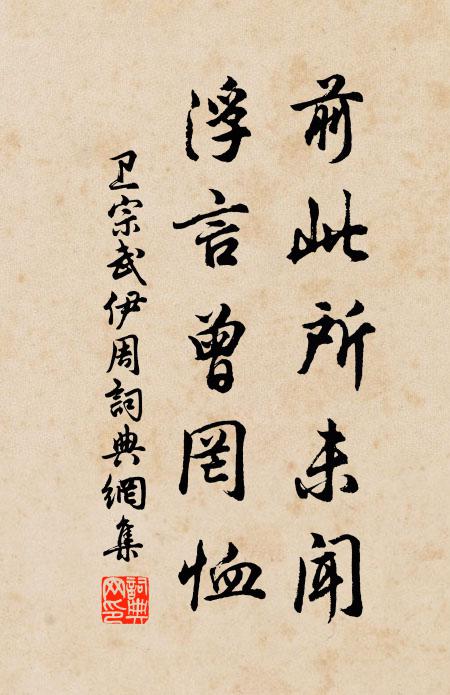 前此所未闻
浮言曾罔恤
卫宗武伊周詞典網集
詞典网印